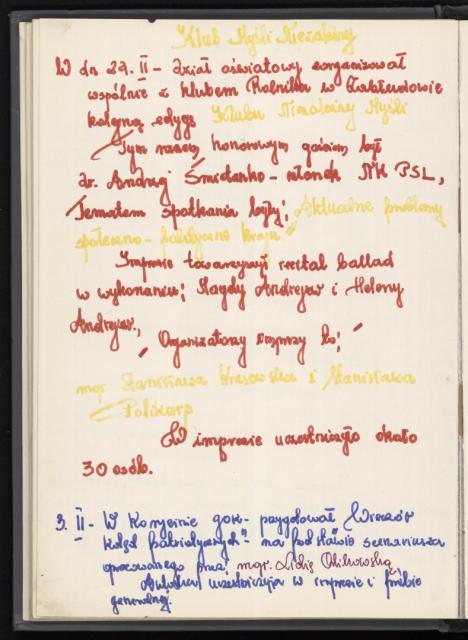 Klub Myśli Niezależnej
W dn 22. II - dział oświatowy zorganizował
wspólnie z klubem Rolnika w Zabłudowie
kolejną edycję Klubu Niezależnej Myśli
Tym razem, honorowym gościem, był
dr. Andrzej Śmietanko - członek NK PSL,
Tematem spotkania były: "Aktualne problemy
społeczno - polityczne kraju"
Imprezie towarzyszył recital ballad
w wykonaniu: Magdy Andrejew i Heleny
Andrejew.,
Organizatorzy imprezy to:
mgr Stanisława Krasowska i Stanisława
Polikarp
W imprezie uczestniczyło około
30 osób.
3. II - W Koźlińcu gok- przygotował "Wieczór
kolęd patriotycznych" na podstawie scenariusza
opracowanego przez mgr. Lidię
Autorka uczestniczyła w imprezie i próbie
generalnej.